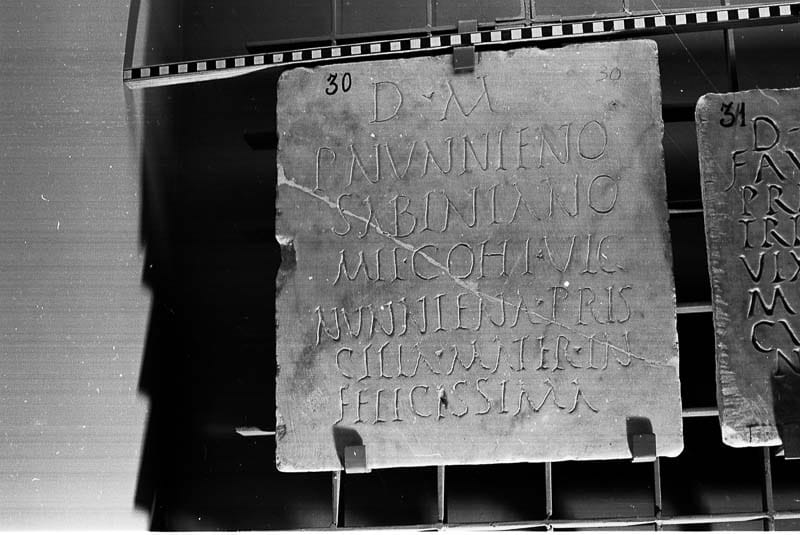 30
30
D · M
P NVNNIENO
SABINIANO
MIL·COH I·VIG
NVNNIENA·PRIS
CILLA·MATER·IN
FELICISSIMA
31
D ·
FAV
PRI
TRI
VIX
M